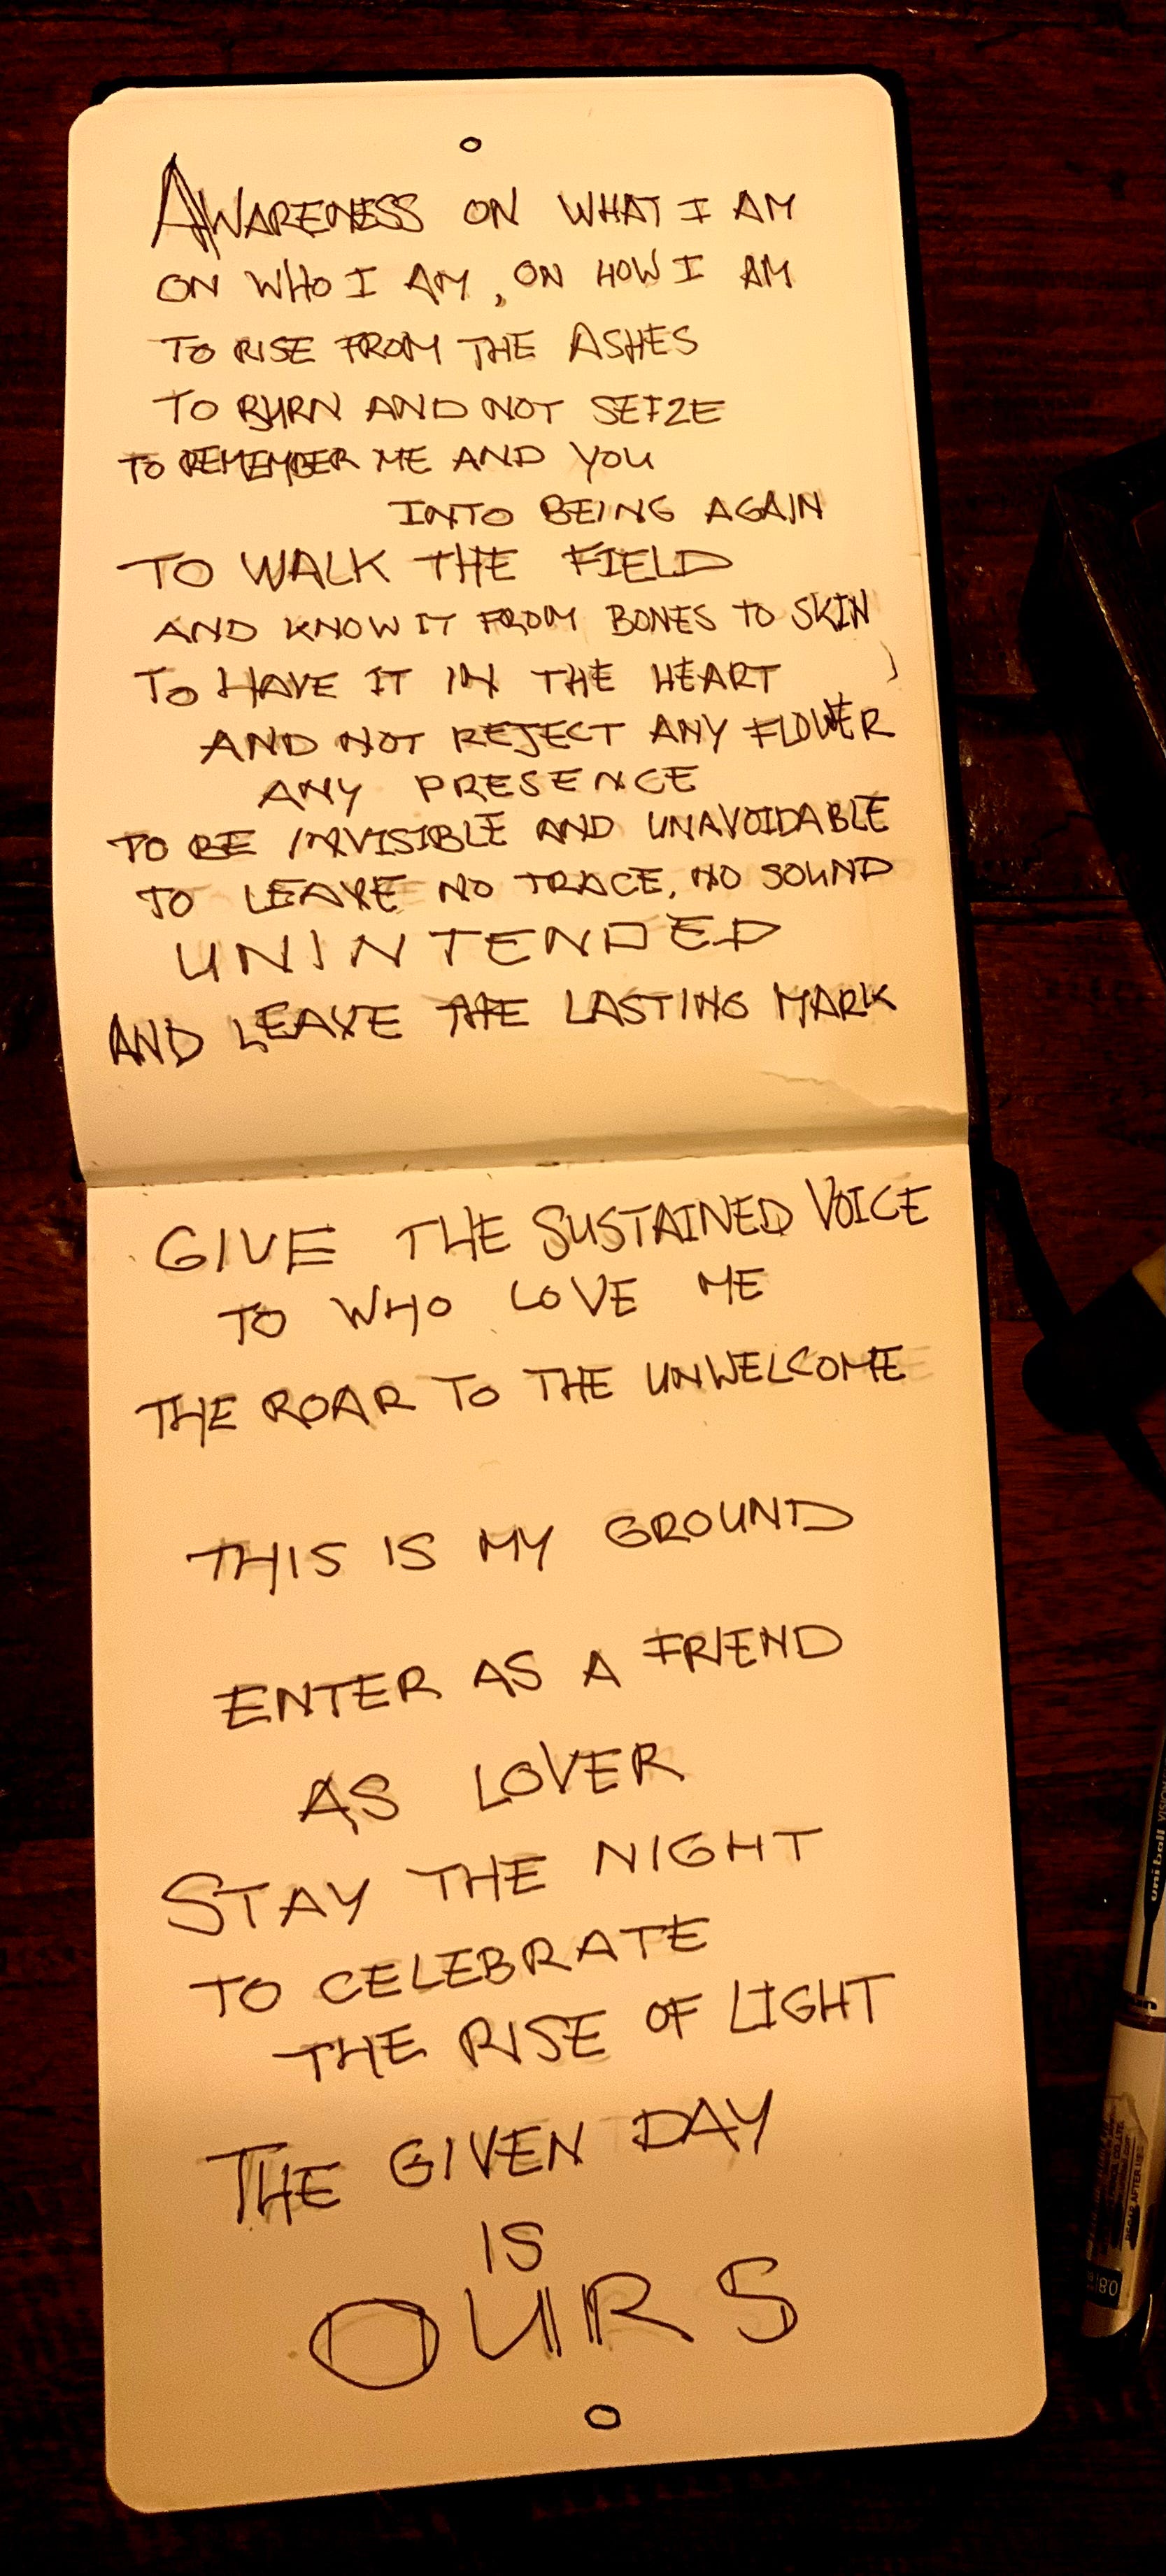 AWARENESS ON WHAT I AM
ON WHO I AM, ON HOW I AM
TO RISE FROM THE ASHES
TO BURN AND NOT SEIZE
TO REMEMBER ME AND YOU
INTO BEING AGAIN
TO WALK THE FIELD
AND KNOW IT FROM BONES TO SKIN
TO HAVE IT IN THE HEART
AND NOT REJECT ANY FLOWER
ANY PRESENCE
TO BE INVISIBLE AND UNAVOIDABLE
TO LEAVE NO TRACE, NO SOUND
UNINTENDED
AND LEAVE THE LASTING MARK
GIVE THE SUSTAINED VOICE
TO WHO LOVE ME
THE ROAR TO THE UNWELCOME
THIS IS MY GROUND
ENTER AS A FRIEND
AS LOVER
STAY THE NIGHT
TO CELEBRATE
THE RISE OF LIGHT
THE GIVEN DAY
IS
OURS
uniball VISION
0.8